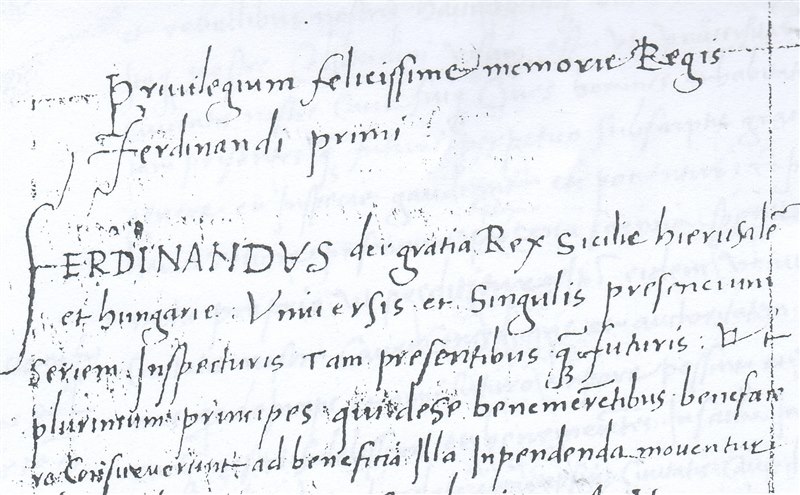 Privilegium felicissime memorie Regis
Ferdinandi primi
FERDINANDVS dei gratia Rex Sicilie hierusalē
et hungarie. Vniversis et Singulis presencium
Seriem Inspecturis Tam presentibus q̄ futuris. Vt
plurimum principes qui de se benemerētibus beneface
re Consueverunt ad beneficia Illa Inpendenda moventur